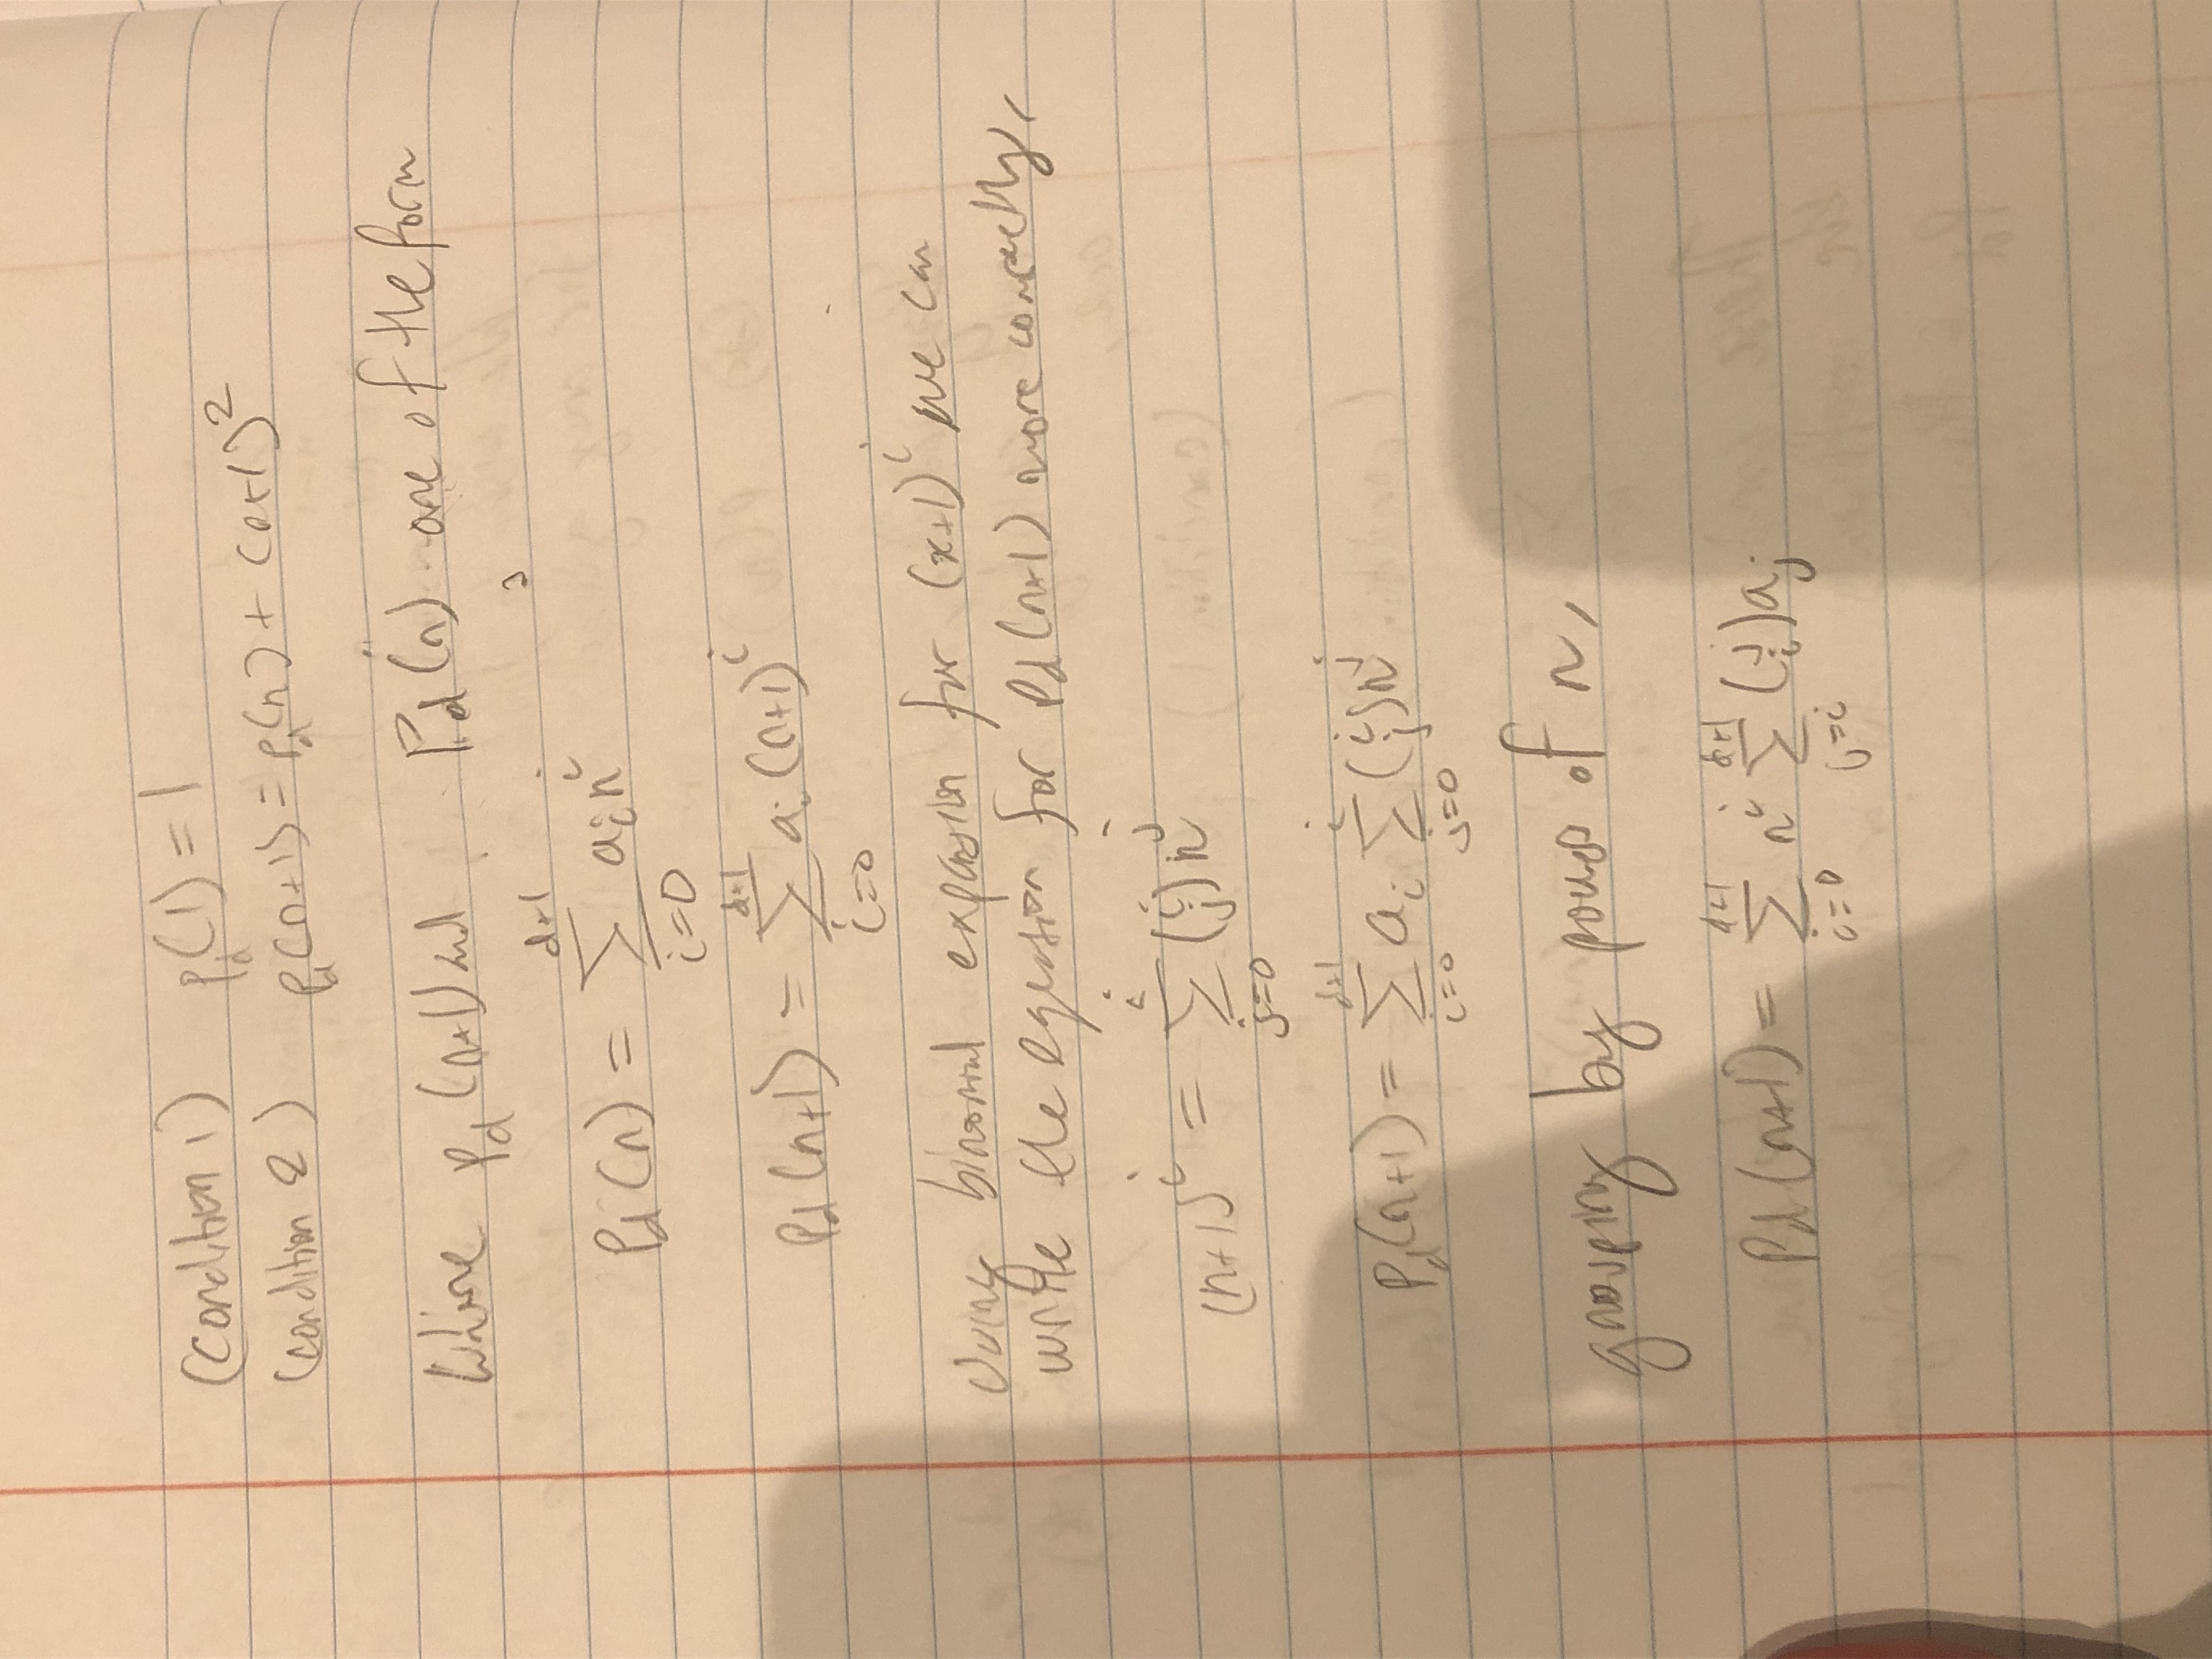 (Condition 1) P_d(1) = 1
(condition 2) P_d(n+1) = P_d(n) + (n+1)^2
Where P_d(n+1) and P_d(n) are of the form
P_d(n) = \sum_{i=0}^{d+1} a_i n^i
P_d(n+1) = \sum_{i=0}^{d+1} a_i (n+1)^i
Using binomial expansion for (x+1)^i we can
write the equation for P_d(n+1) more compactly,
(n+1)^i = \sum_{j=0}^{i} \binom{i}{j} n^j
P_d(n+1) = \sum_{i=0}^{d+1} a_i \sum_{j=0}^{i} \binom{i}{j} n^j
grouping by powers of n,
P_d(n+1) = \sum_{i=0}^{d+1} n^i \sum_{j=i}^{d+1} \binom{j}{i} a_j